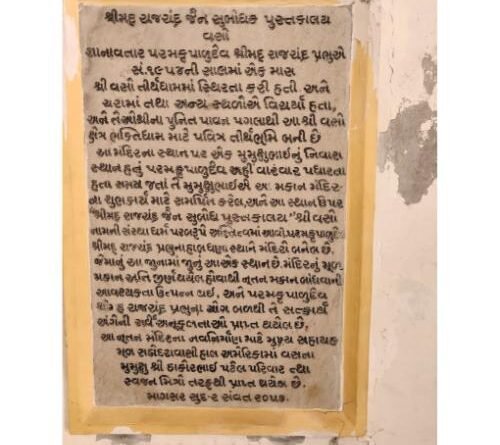 શ્રીમદ્ રાજચંદ્ર જૈન સુબોધક પુસ્તકાલય
વસો
જ્ઞાનાવતાર પરમકૃપાળુદેવ શ્રીમદ્ રાજચંદ્ર પ્રભુએ
સં.૧૯૫૪ની સાલમાં એક માસ
શ્રી વસો તીર્થધામમાં સ્થિરતા કરી હતી અને
ચરામાં તથા અન્ય સ્થળોએ વિચર્યા હતા,
અને તેઓશ્રીના પુનિત પાવન પગલાથી આ શ્રી વસો
ક્ષેત્ર ભક્તિધામ માટે પવિત્ર તીર્થભૂમિ બની છે
આ મંદિરના સ્થાન પર એક મુમુક્ષુભાઈનું નિવાસ
સ્થાન હતું પરમકૃપાળુદેવ અહીં વારંવાર પધારતા
હતા સમય જતાં તે મુમુક્ષુભાઈએ આ મકાન મંદિર
ના શુભકાર્ય માટે સમર્પિત કરેલ,અને આ સ્થાન ઉપર
"શ્રીમદ્ રાજચંદ્ર જૈન સુબોધ પુસ્તકાલય" શ્રી વસો
નામની સંસ્થા ધર્મ પરબરૂપે અસ્તિત્વમાં આવી.પરમકૃપાળુદેવ
શ્રીમદ્ રાજચંદ્ર પ્રભુના હાલ ઘણા સ્થાને મંદિરો બનેલ છે.
જેમાનું આ જુનામાં જુનું આ એક સ્થાન છે.મંદિરનું મૂળ
મકાન અતિ જીર્ણ થયેલ હોવાથી નૂતન મકાન બાંધવાની
આવશ્યકતા ઉત્પન્ન થઈ, અને પરમકૃપાળુદેવ
શ્રીમદ્ રાજચંદ્ર પ્રભુના યોગ બળથી તે સત્કાર્ય
અંગેની સર્વ અનુકૂળતાઓ પ્રાપ્ત થયેલ છે.
આ નૂતન મંદિરના નવનિર્માણ માટે મુખ્ય સહાયક
મૂળ સહોદરાવાસી હાલ અમેરિકામાં વસતા
મુમુક્ષુ શ્રી ઠાકોરભાઈ પટેલ પરિવાર તથા
સ્વજન મિત્રો તરફથી પ્રાપ્ત થયેલ છે.
માગસર સુદ-૨ સંવત ૨૦૫૭.